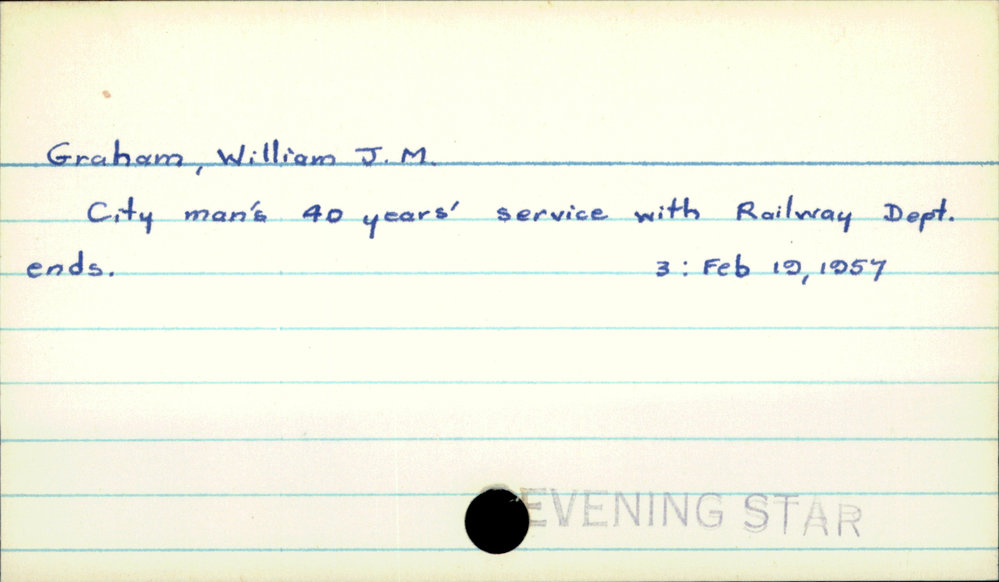 Graham, William J. M.
City man's 40 years' service with Railway Dept.
ends. 3: Feb 19, 1957
EVENING STAR